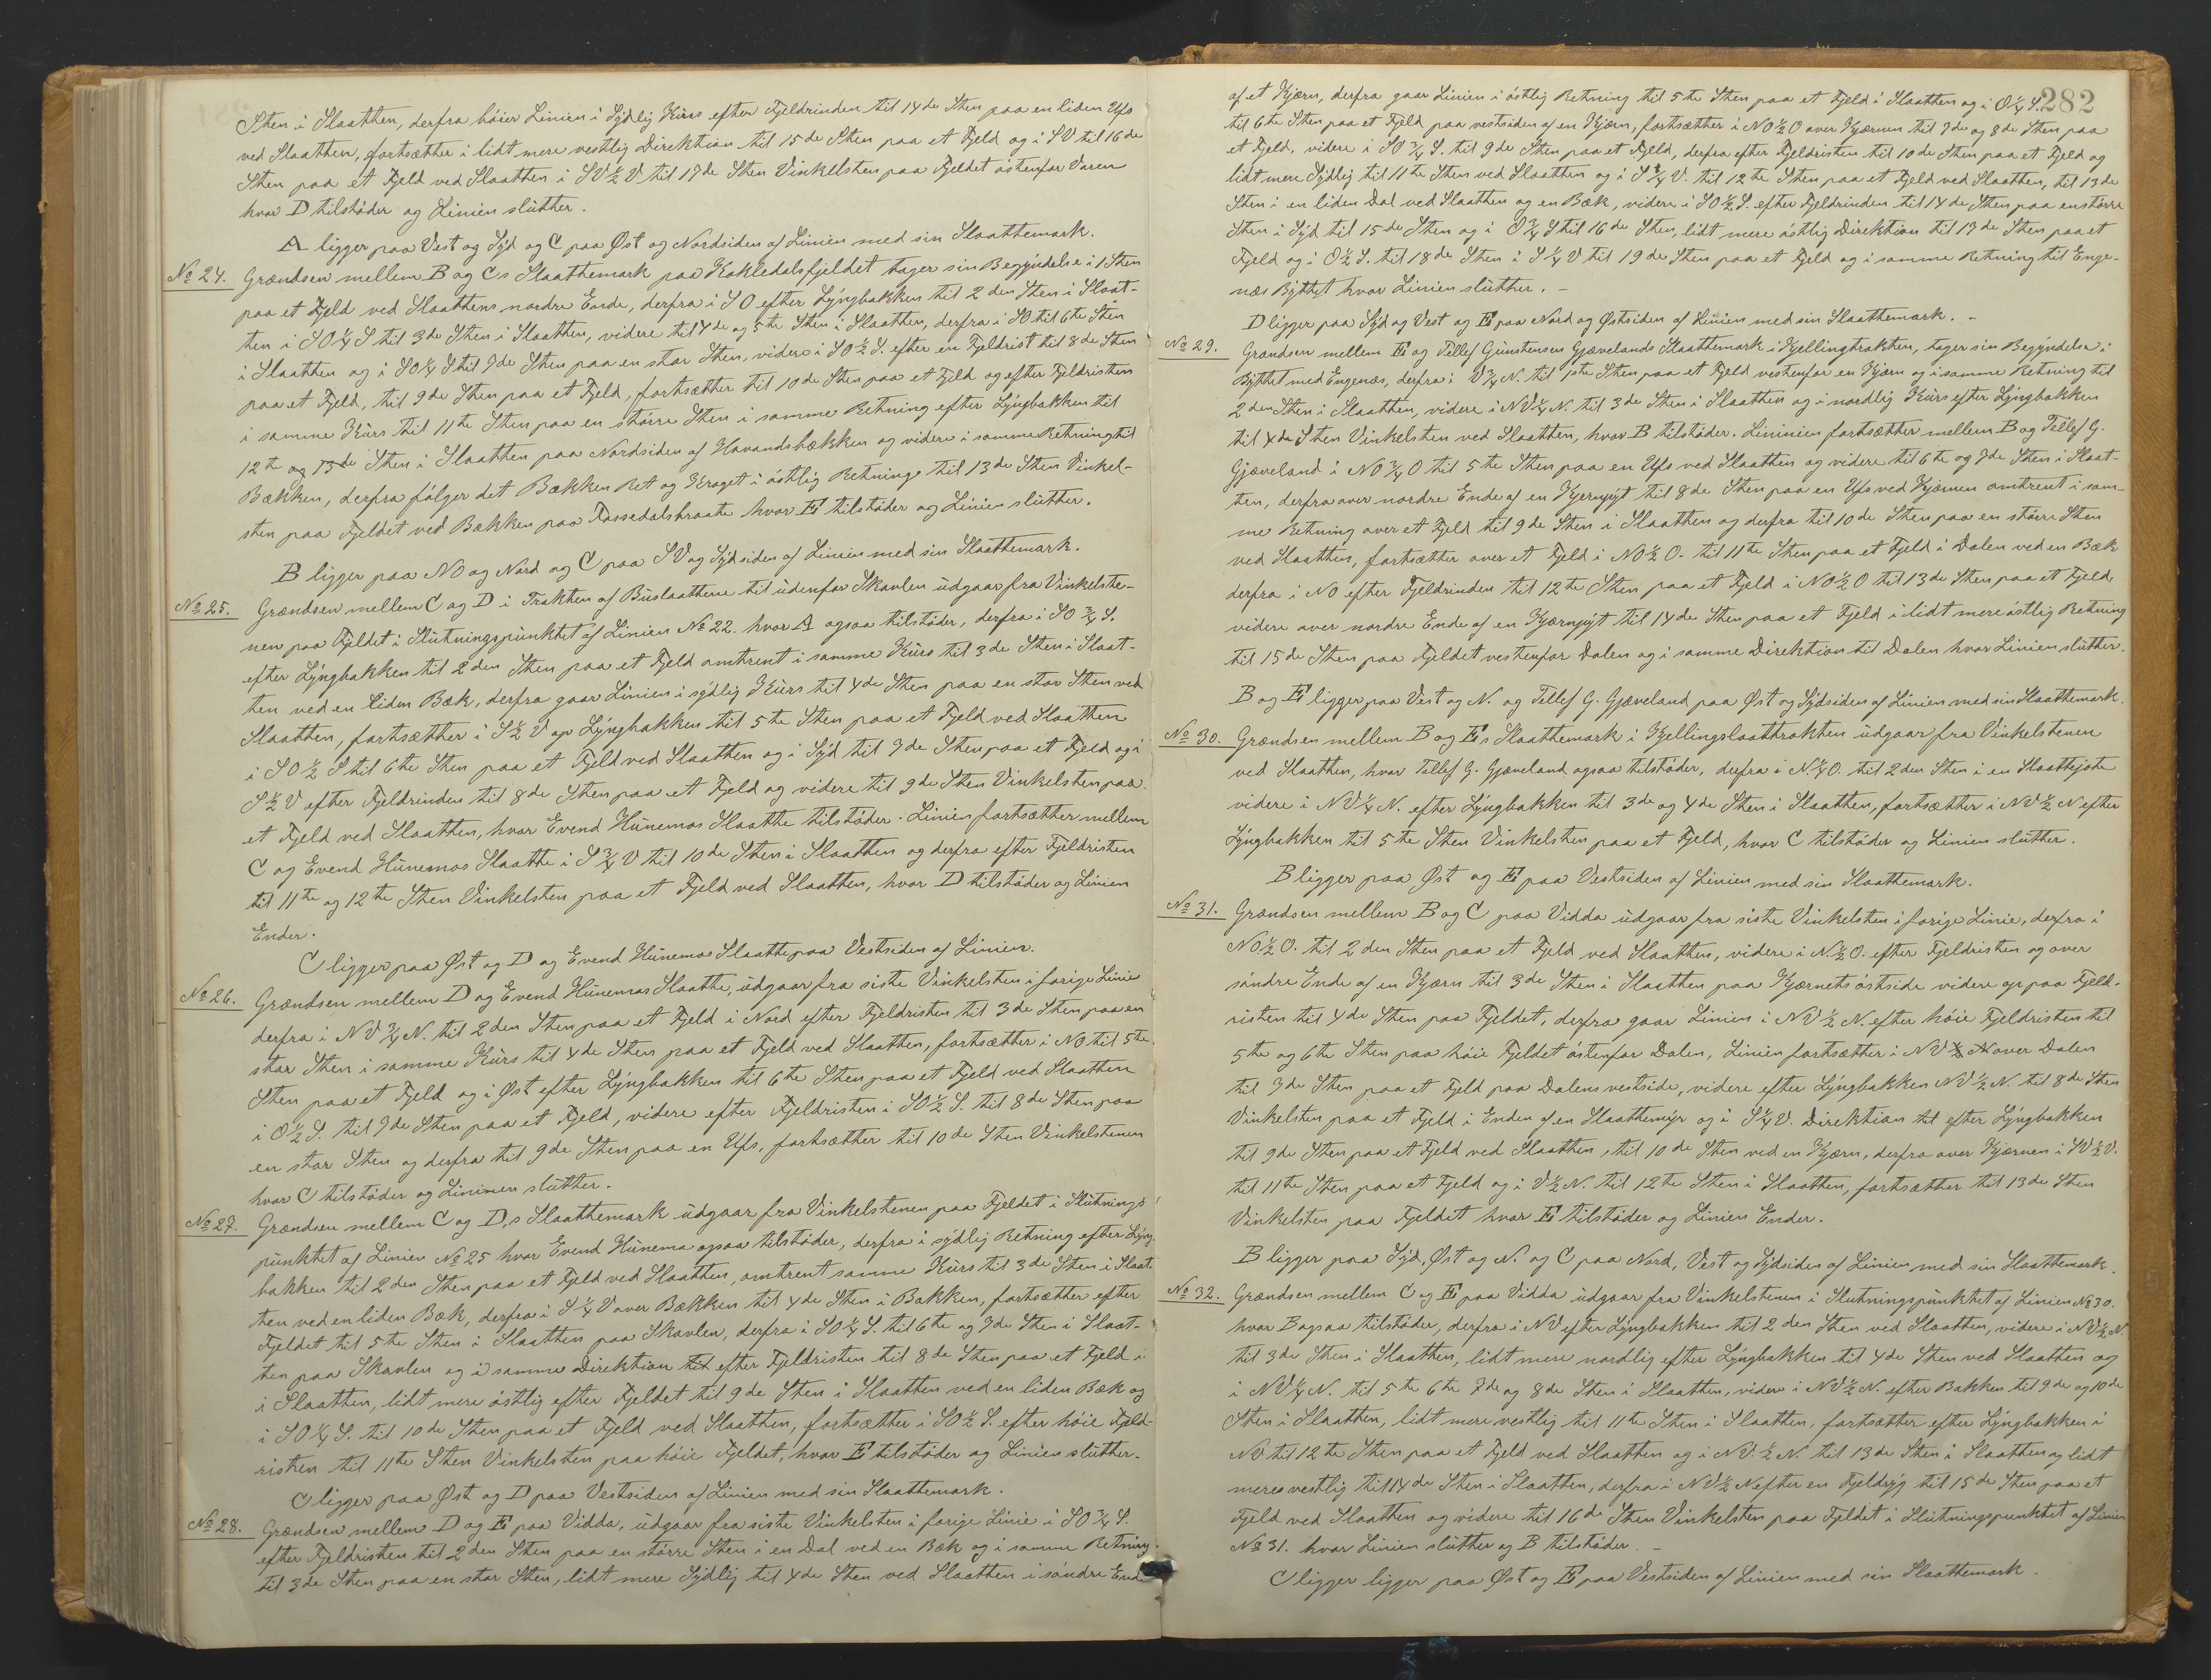 Sten i Slaatten, derfra böier Linien i Sÿdlig Kürs efter Fjeldrinden til 14de Sten paa en liden Ufs
ved Slaatten, fortsætter i lidt mere vestlig Direktion til 15de Sten paa et Fjeld og i SV til 16de
Sten paa et Fjeld ved Slaatten i SV½V til 17de Sten Vinkelsten paa Fjeldet östenfor Varen
hvor D tilstöder og Linien slütter.
A ligger paa Vest og Sÿd og C paa Øst og Nordsiden af Linien med sin Slaattemark.
No 24. Grændsen mellem B og Cs Slaattemark paa Kokledalsfjeldet tager sin Begÿndelse i 1 Sten
paa et Fjeld ved Slaattens nordre Ende, derfra i SO efter Lÿngbakken til 2den Sten i Slaat-
ten i SO¼S til 3de Sten i Slaatten, videre til 4de og 5te Sten i Slaatten, derfra i SO til 6te Sten
i Slaatten og i SO¼S til 7de Sten paa en stor Sten, videre i SO½S. efter en Fjeldrist til 8de Sten
paa et Fjeld, til 9de Sten paa et Fjeld, fortsætter til 10de Sten paa et Fjeld og efter Fjeldristen
i samme Kürs til 11te Sten paa en större Sten i samme Retning efter Lÿngbakken til
12te og 13de Sten i Slaatten paa Nordsiden af Havandsbækken og videre i samme Retning til
Bækken, derfra fölger det Bækken Ret og Kroget i östlig Retning til 13de Sten Vinkel-
sten paa Fjeldet ved Bækken paa Fossedalsbraate hvor E tilstöder og Linien slütter.
B ligger paa NO og Nord og C paa SV og Sÿdsiden af Linien med sin Slaattemark.
No 25. Grændsen mellem C og D i Trakten af Büslaattene til üdenfor Skavlen üdgaar fra Vinkelste-
nen paa Fjeldet i Slütningspünktet af Linien No 22. hvor A ogsaa tilstöder, derfra i SO¾S.
efter Lÿngbakken til 2den Sten paa et Fjeld omtrent i samme Kürs til 3de Sten i Slaat-
ten ved en liden Bæk, derfra gaar Linien i sÿdlig Kürs til 4de Sten paa en stor Sten ved
Slaatten, fortsætter i S½V op Lÿngbakken til 5te Sten paa et Fjeld ved Slaatten
i SO½S til 6te Sten paa et Fjeld ved Slaatten og i Sÿd til 7de Sten paa et Fjeld og i
S½V efter Fjeldrinden til 8de Sten paa et Fjeld og videre til 9de Sten Vinkelsten paa
et Fjeld ved Slaatten, hvor Evend Hünemos Slaatte tilstöder. Linien fortsætter mellem
C og Evend Hünemos Slaatte i S¾V til 10de Sten i Slaatten og derfra efter Fjeldristen
til 11te og 12te Sten Vinkelsten paa et Fjeld ved Slaatten, hvor D tilstöder og Linien
Ender.
C ligger paa Øst og D og Evend Hünemos Slaatte paa Vestsiden af Linien.
No 26. Grændsen mellem D og Evend Hünemos Slaatte, üdgaar fra siste Vinkelsten i forige Linie
derfra i NV¾N. til 2den Sten paa et Fjeld i Nord efter Fjeldristen til 3de Sten paa en
stor Sten i samme Kürs til 4de Sten paa et Fjeld ved Slaatten, fortsætter i NO til 5te
Sten paa et Fjeld og i Øst efter Lÿngbakken til 6te Sten paa et Fjeld ved Slaatten
i O½S. til 7de Sten paa et Fjeld, videre efter Fjeldristen i SO½S. til 8de Sten paa
en stor Sten og derfra til 9de Sten paa en Ufs, fortsætter til 10de Sten Vinkelstenen
hvor C tilstöder og Lininen slütter.
No 27. Grændsen mellem C og D,s Slaattemark üdgaar fra Vinkelstenen paa Fjeldet i Slütnings
pünktet af Linien No 25 hvor Evend Hünemo ogsaa tilstöder, derfra i sÿdlig Retning efter Lÿng-
bakken til 2den Sten paa et Fjeld ved Slaatten, omtrent samme Kürs til 3de Sten i Slaat-
ten ved en liden Bæk, derfra i S¼V over Bækken til 4de Sten i Bakken, fortsætter efter
Fjeldet til 5te Sten i Slaatten paa Skavlen, derfra i SO¼S. til 6te og 7de Sten i Slaat-
ten paa Skavlen og i samme Direktion til efter Fjeldristen til 8de Sten paa et Fjeld i
i Slaatten, lidt mere östlig efter Fjeldet til 9de Sten i Slaatten ved en liden Bæk og
i SO¼S. til 10de Sten paa et Fjeld ved Slaatten, fortsætter i SO½S. efter höie Fjeld-
risten til 11te Sten Vinkelsten paa höie Fjeldet, hvor E tilstöder og Linien slütter.
C ligger paa Øst og D paa Vestsiden af Linien med sin Slaattemark.
No 28. Grændsen mellem D og E paa Vidda, üdgaar fra siste Vinkelsten i forige Linie i SO¾S.
efter Fjeldristen til 2den Sten paa en större Sten i en Dal ved en Bæk og i samme Retning
til 3de Sten paa en stor Sten, lidt mere Sÿdlig til 4de Sten ved Slaatten i söndre Ende
282
af et Kjærn, derfra gaar Linien i östlig Retning til 5te Sten paa et Fjeld i Slaatten og i O¼S.
til 6te Sten paa et Fjeld paa vestsiden af en Kjærn, fortsætter i NO½O over Kjærnen til 7de og 8de Sten paa
et Fjeld, videre i SO¾S. til 9de Sten paa et Fjeld, derfra efter Fjeldristen til 10de Sten paa et Fjeld og
lidt mere Sÿdlig til 11te Sten ved Slaatten og i S¾V. til 12te Sten paa et Fjeld ved Slaatten, til 13de
Sten i en liden Dal ved Slaatten og en Bæk, videre i SO½S. efter Fjeldrinden til 14de Sten paa en större
Sten i Sÿd til 15de Sten og i O¾S til 16de Sten, lidt mere östlig Direktion til 17de Sten paa et
Fjeld og i O½S. til 18de Sten i S¼V til 19de Sten paa et Fjeld og i samme Retning til Enge-
næs Bÿttet hvor Linien slütter. -
D ligger paa Sÿd og Vest og E paa Nord og Østsiden af Linien med sin Slaattemark. -
No 29. Grændsen mellem E og Tellef Günstensen Gjævelands Slaattemark i Kjellingtrakten, tager sin Begÿndelse i
Bÿttet med Engenæs, derfra i V¾N. til 1ste Sten paa et Fjeld vestenfor en Kjærn og i samme Retning til
2den Sten i Slaatten, videre i NV¼N. til 3de Sten i Slaatten og i nordlig Kürs efter Lÿngbakken
til 4de Sten Vinkelsten ved Slaatten, hvor B tilstöder. Lininien fortsætter mellem B og Tellef G.
Gjæveland i NO¾O til 5te Sten paa en Ufs ved Slaatten og videre til 6te og 7de Sten i Slaat-
ten, derfra over nordre Ende af en Kjernpÿt til 8de Sten paa en Ufs ved Kjærnen omtrent i sam-
me Retning over et Fjeld til 9de Sten i Slaatten og derfra til 10de Sten paa en större Sten
ved Slaatten, fortsætter over et Fjeld i NO½O. til 11te Sten paa et Fjeld i Dalen ved en Bæk
derfra i NO efter Fjeldrinden til 12te Sten paa et Fjeld i NO½O til 13de Sten paa et Fjeld,
videre over nordre Ende af en Kjærnpÿt til 14de Sten paa et Fjeld i lidt mere östlig Retning
til 15de Sten paa Fjeldet vestenfor Dalen og i samme Direktion til Dalen hvor Linien slütter.
B og E ligger paa Vest og N. og Tellef G. Gjæveland paa Øst og Sÿdsiden af Linien med sin Slaattemark.
No 30. Grændsen mellem B og E,s Slaattemark i Kjellingslaattrakten üdgaar fra Vinkelstenen
ved Slaatten, hvor Tellef G. Gjæveland ogsaa tilstöder, derfra i N.¼O. til 2den Sten i en Slaattejote
videre i NV¼N. efter Lÿngbakken til 3de og 4de Sten i Slaatten, fortsætter i NV½N efter
Lÿngbakken til 5te Sten Vinkelsten paa et Fjeld, hvor C tilstöder og Linien slütter.
B ligger paa Øst og E paa Vestsiden af Linien med sin Slaattemark.
No 31. Grændsen mellem B og C paa Vidda üdgaar fra siste Vinkelsten i forige Linie, derfra i
NO½O. til 2den Sten paa et Fjeld ved Slaatten, videre i N.½O. efter Fjeldristen og over
söndre Ende af en Kjærn til 3de Sten i Slaatten paa Kjærnets östside videre op paa Fjeld-
risten til 4de Sten paa Fjeldet, derfra gaar Linien i NV½N. efter höie Fjeldristen til
5te og 6te Sten paa höie Fjeldet östenfor Dalen, Linien fortsætter i NV over Dalen
til 7de Sten paa et Fjeld paa Dalens vestside, videre efter Lÿngbakken NV½N. til 8de Sten
Vinkelsten paa et Fjeld i Enden af en Slaattemÿr og i S¼V. Direktion til efter Lÿngbakken
til 9de Sten paa et Fjeld ved Slaatten, til 10de Sten ved en Kjærn, derfra over Kjærnen i SV½V.
til 11te Sten paa et Fjeld og i V½N. til 12te Sten i Slaatten, fortsætter til 13de Sten
Vinkelsten paa Fjeldet hvor E tilstöder og Linien Ender.
B ligger paa Sÿd, Øst og N. og C paa Nord, Vest og Sÿdsiden af Linien med sin Slaattemark.
No 32. Grændsen mellem C og E paa Vidda üdgaar fra Vinkelstenen i Slutningspünktet af Linien No 30.
hvor B ogsaa tilstöder, derfra i NV efter Lÿngbakken til 2den Sten ved Slaatten, videre i NV½N.
til 3de Sten i Slaatten, lidt mere nordlig efter Lÿngbakken til 4de Sten ved Slaatten og
i NV¼N. til 5te 6te 7de og 8de Sten i Slaatten, videre i NV½N. efter Bakken til 9de og 10de
Sten i Slaatten, lidt mere vestlig til 11te Sten i Slaatten, fortsætter efter Lÿngbakken i
NV til 12te Sten paa et Fjeld ved Slaatten og i NV.½N. til 13de Sten i Slaatten og lidt
mere vestlig til 14de Sten i Slaatten, derfra i NV½N efter en Fjeldrÿg til 15de Sten paa et
Fjeld ved Slaatten og videre til 16de Sten Vinkelsten paa Fjeldet i Slütningspunktet af Linien
No 31. hvor Linien slütter og B tilstöder. -
C ligger ligger paa Øst og E paa Vestsiden af Linien med sin Slaattemark.